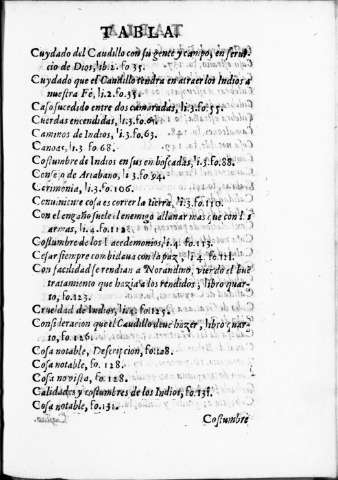 TABLA
Cuydado del Caudillo con su gente y campo, en serui-
cio de Dios, lib.2. fo.35.
Cuydado que el Caudillo tendra en atraer los Indios a
nuestra Fé, li.2. fo.35.
Caso sucedido entre dos camaradas, li.3.fo.55.
Cuerdas encendidas, li.3.fo.
Caminos de Indios, li.3.fo.63.
Canoas, li.3. fo.68.
Costumbre de Indios en sus emboscadas, li.3.fo.88.
Consejo de Artabano, li.3.fo.94.
Cerimonia, li.3.fo.106.
Conuiniente cosa es correr la tierra, li.3.fo.110.
Con el engaño suele el enemigo allanar mas que con las
armas, li.4.fo.112.
Costumbre de los Lacedemonios, li.4. fo.113.
Cesar siempre combidaua con la paz, li.4. fo.121.
Con facilidad se rendian a Norandino, viendo el bué
tratamiento que hazia a los rendidos; libro quar-
to, fo.123.
Crueldad de Indios, li.4. fo.125.
Consideracion que el Caudillo deue hazer, libro quar-
to, fo.126.
Cosa notable, Descripcion, fo.128.
Cosa notable, fo. 128.
Cosa no vista, fo.128.
Calidades y costumbres de los Indios, fo.131.
Cosa notable, fo.131.
Costumbre